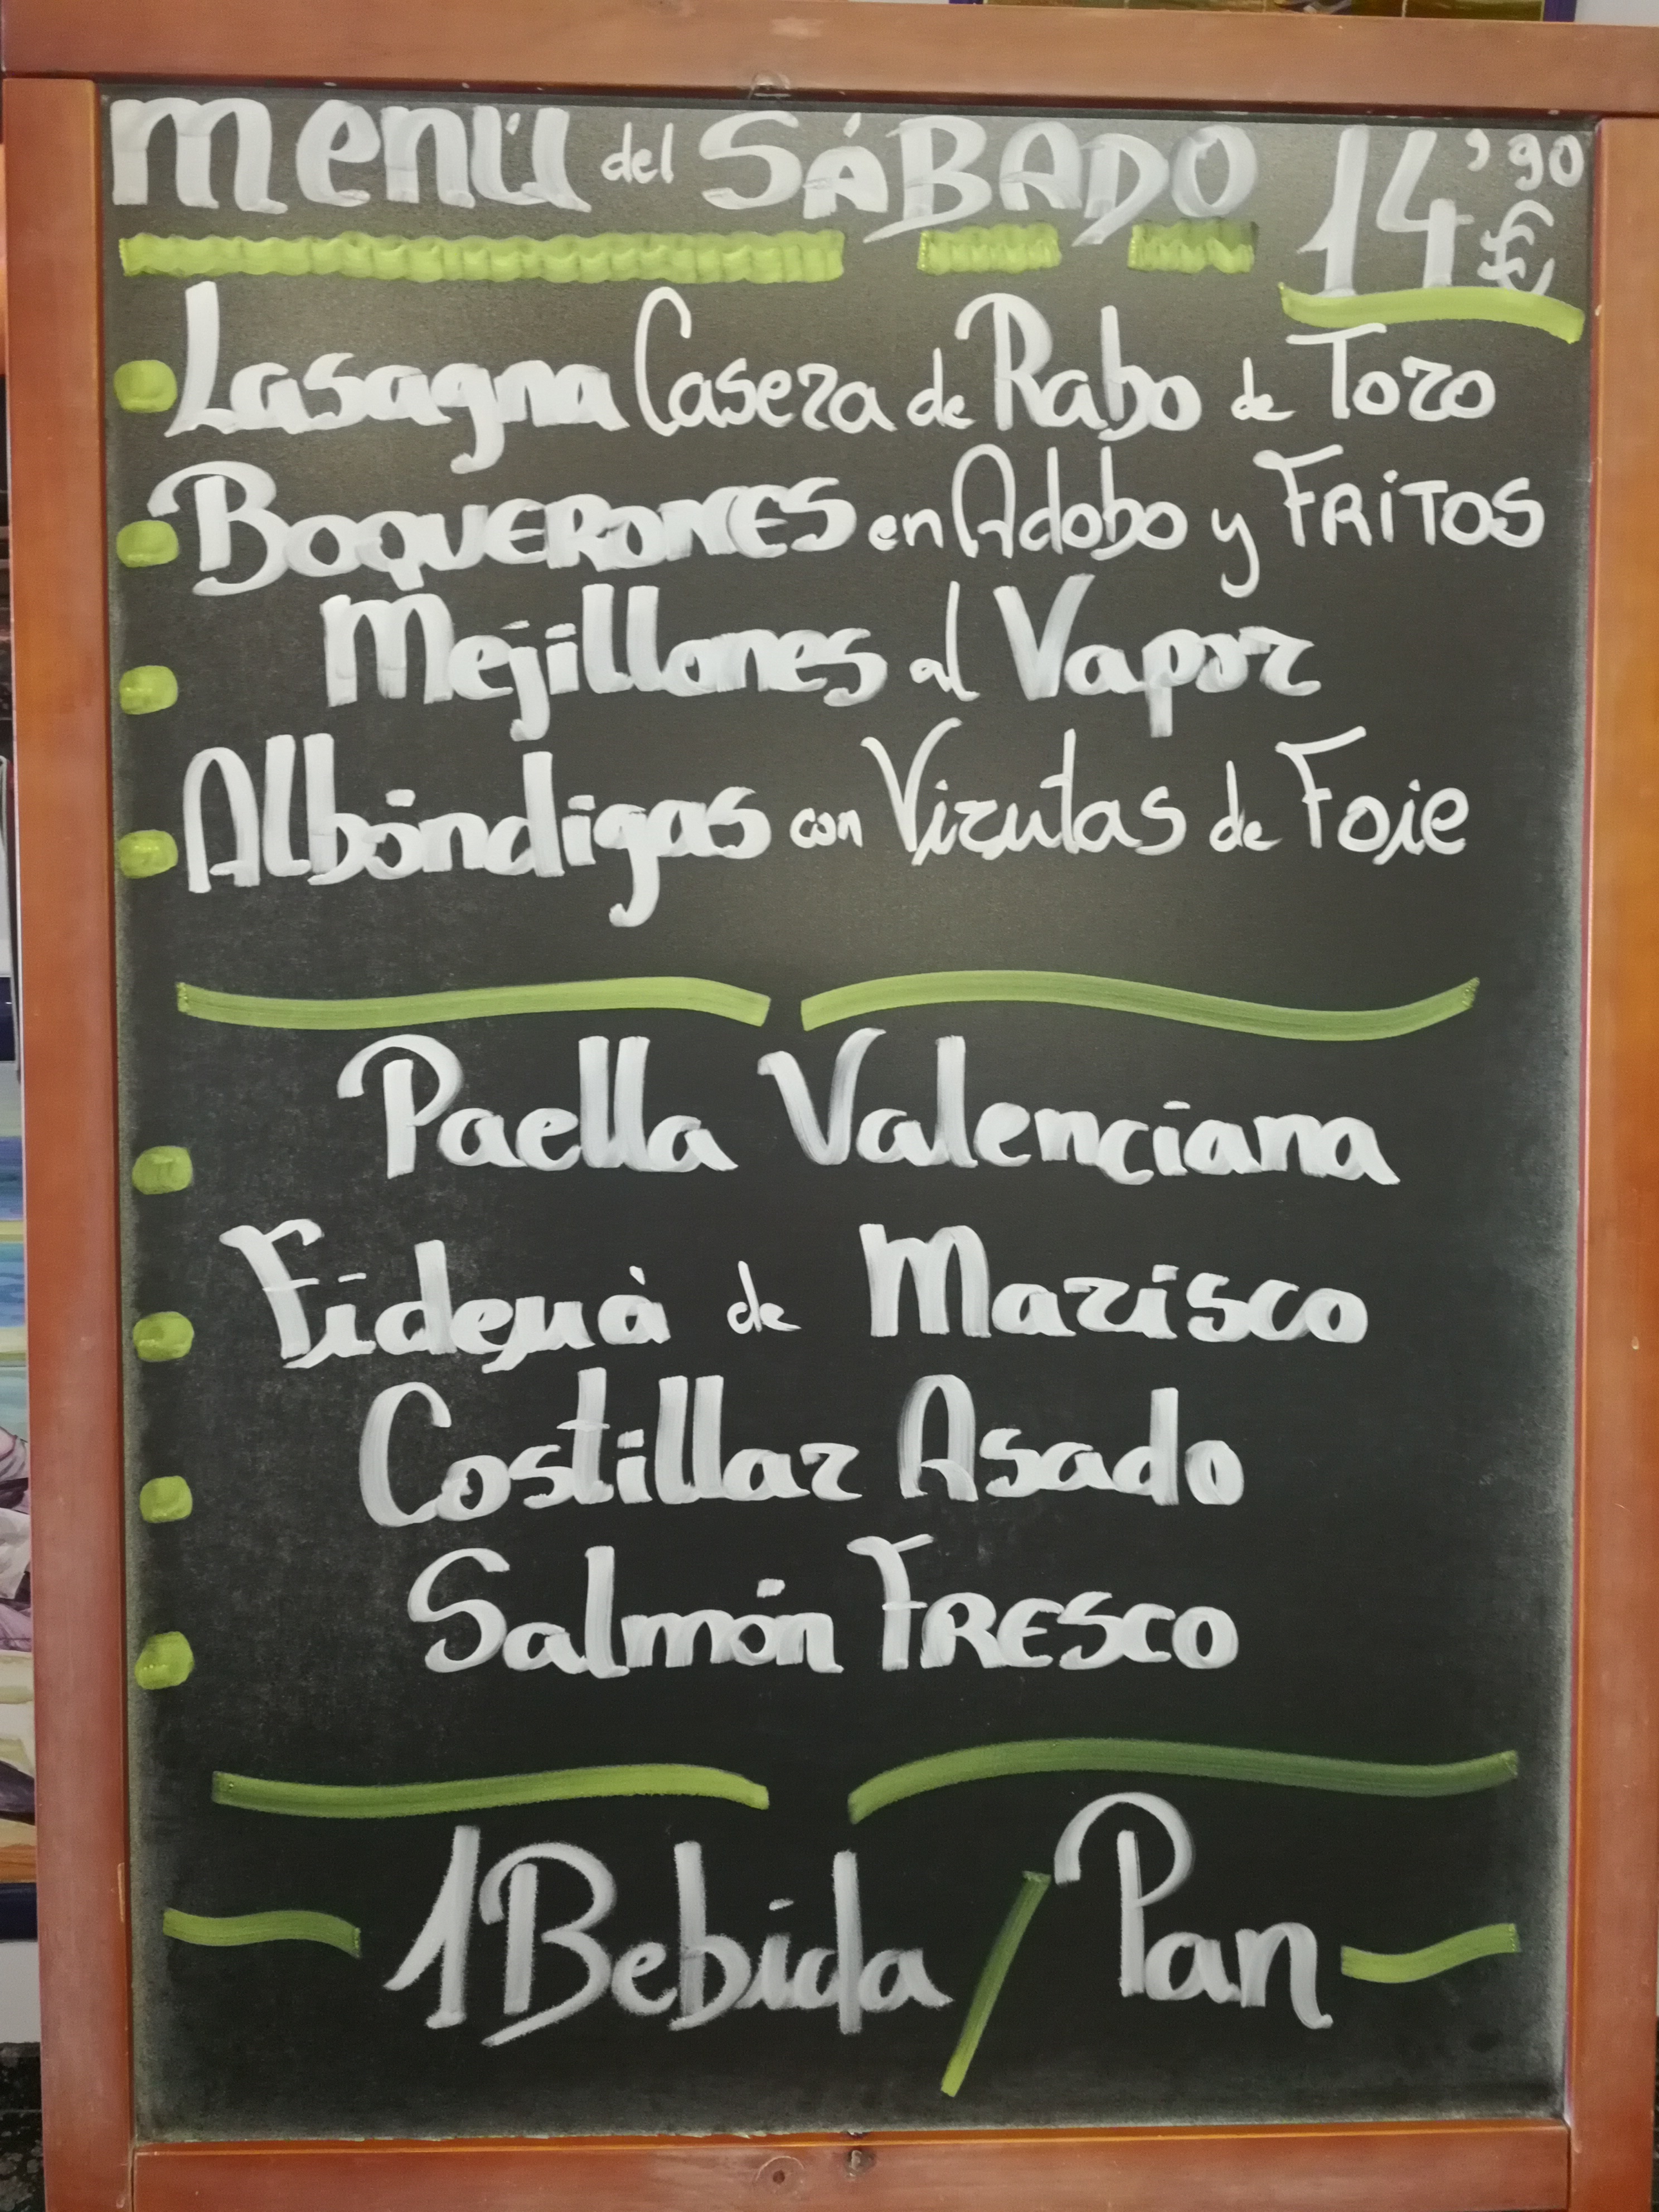 Menú del SÁBADO 14'90 €
Lasagna Casera de Rabo de Toro
BOQUERONES en Adobo y FRITOS
Mejillones al Vapor
Albóndigas con Virutas de Foie
Paella Valenciana
Fideuà de Marisco
Costillar Asado
Salmón FRESCO
1 Bebida / Pan